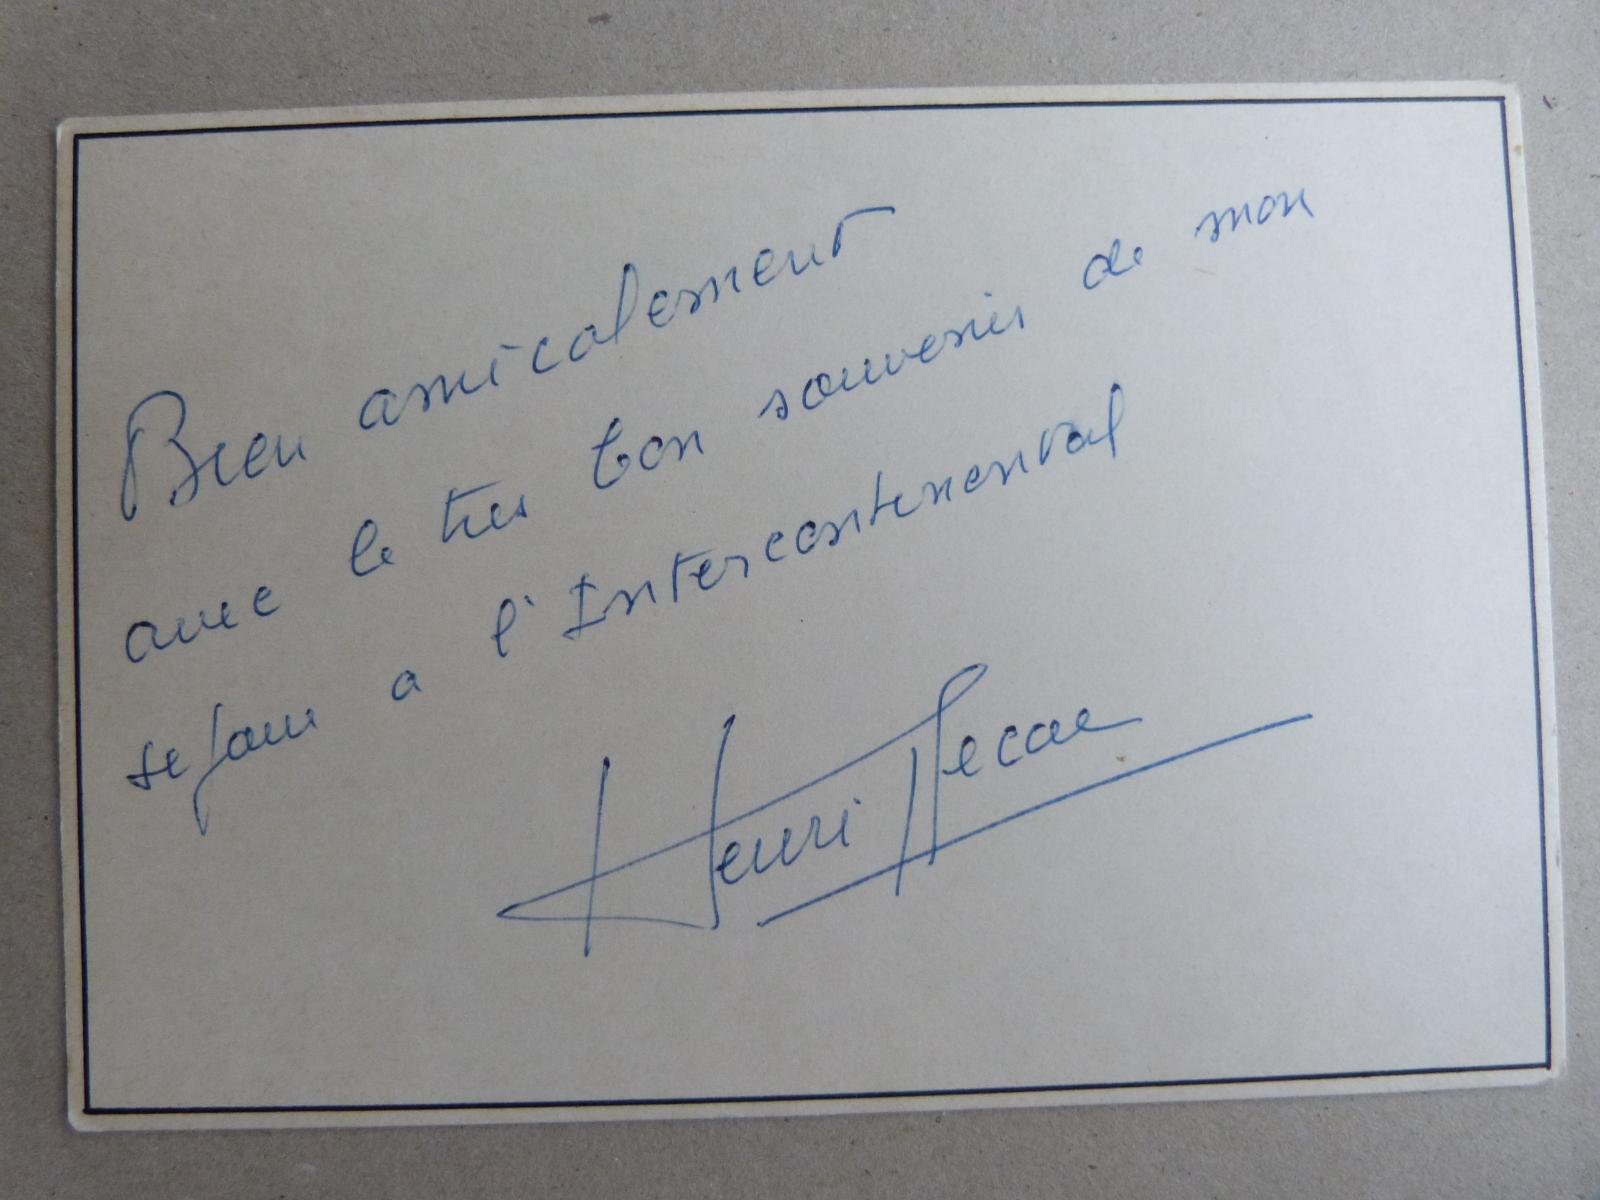 Bien amicalement
avec le très bon souvenir de mon
séjour a l'Intercontinental
Henri